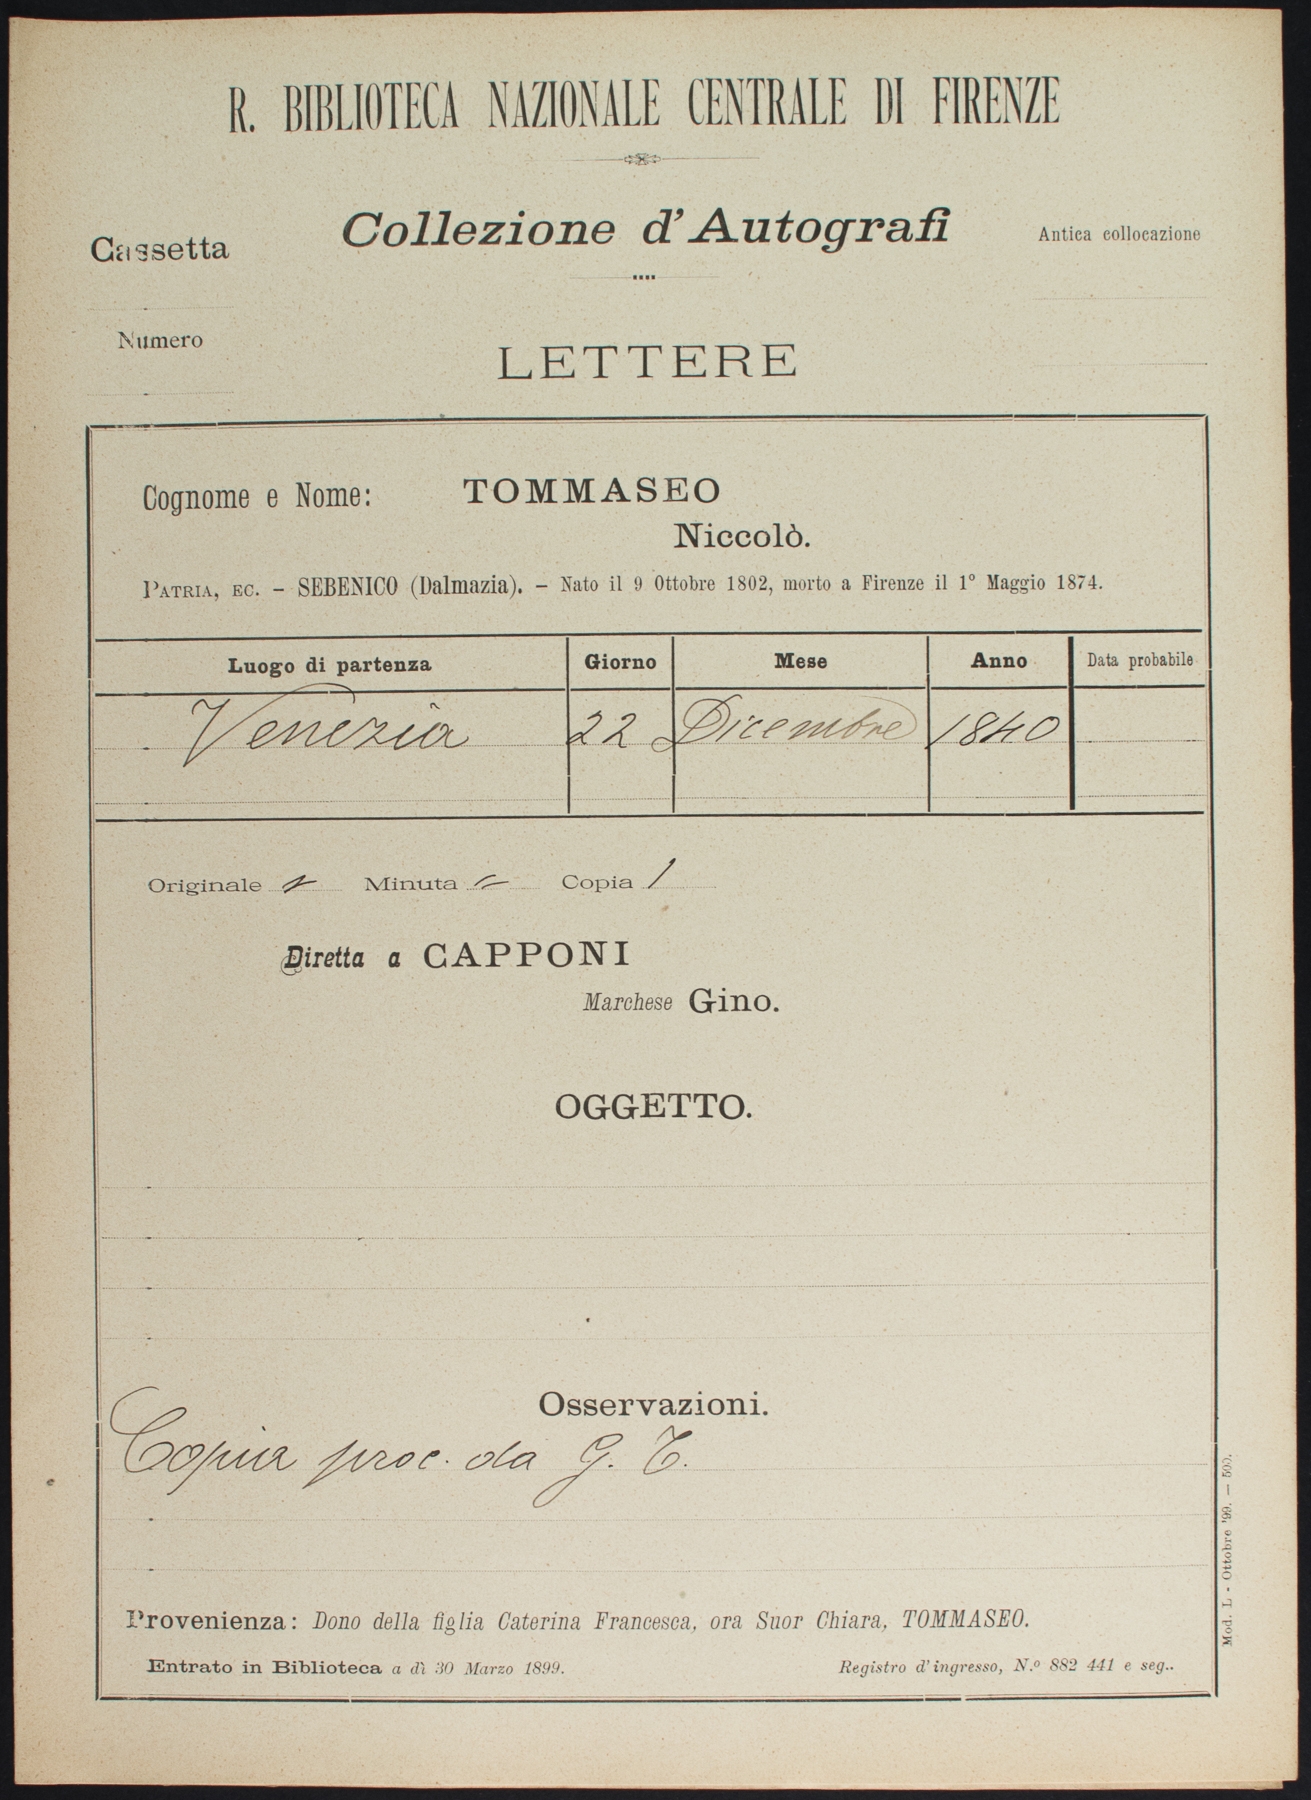 R. BIBLIOTECA NAZIONALE CENTRALE DI FIRENZE
Cassetta
Collezione d'Autografi
Antica collocazione
Numero
LETTERE
Cognome e Nome: TOMMASEO
Niccolò.
PATRIA, EC. – SEBENICO (Dalmazia). – Nato il 9 Ottobre 1802, morto a Firenze il 1° Maggio 1874.
Luogo di partenza Giorno Mese Anno Data probabile
Venezia 22 Dicembre 1840
Originale Minuta Copia 1
Diretta a CAPPONI
Marchese Gino.
OGGETTO.
Osservazioni.
Copia proc. da G. T.
Provenienza: Dono della figlia Caterina Francesca, ora Suor Chiara, TOMMASEO.
Entrato in Biblioteca a dì 30 Marzo 1899. Registro d'ingresso, N.º 882 441 e seg..
Mod. L - Ottobre '99. — 500.